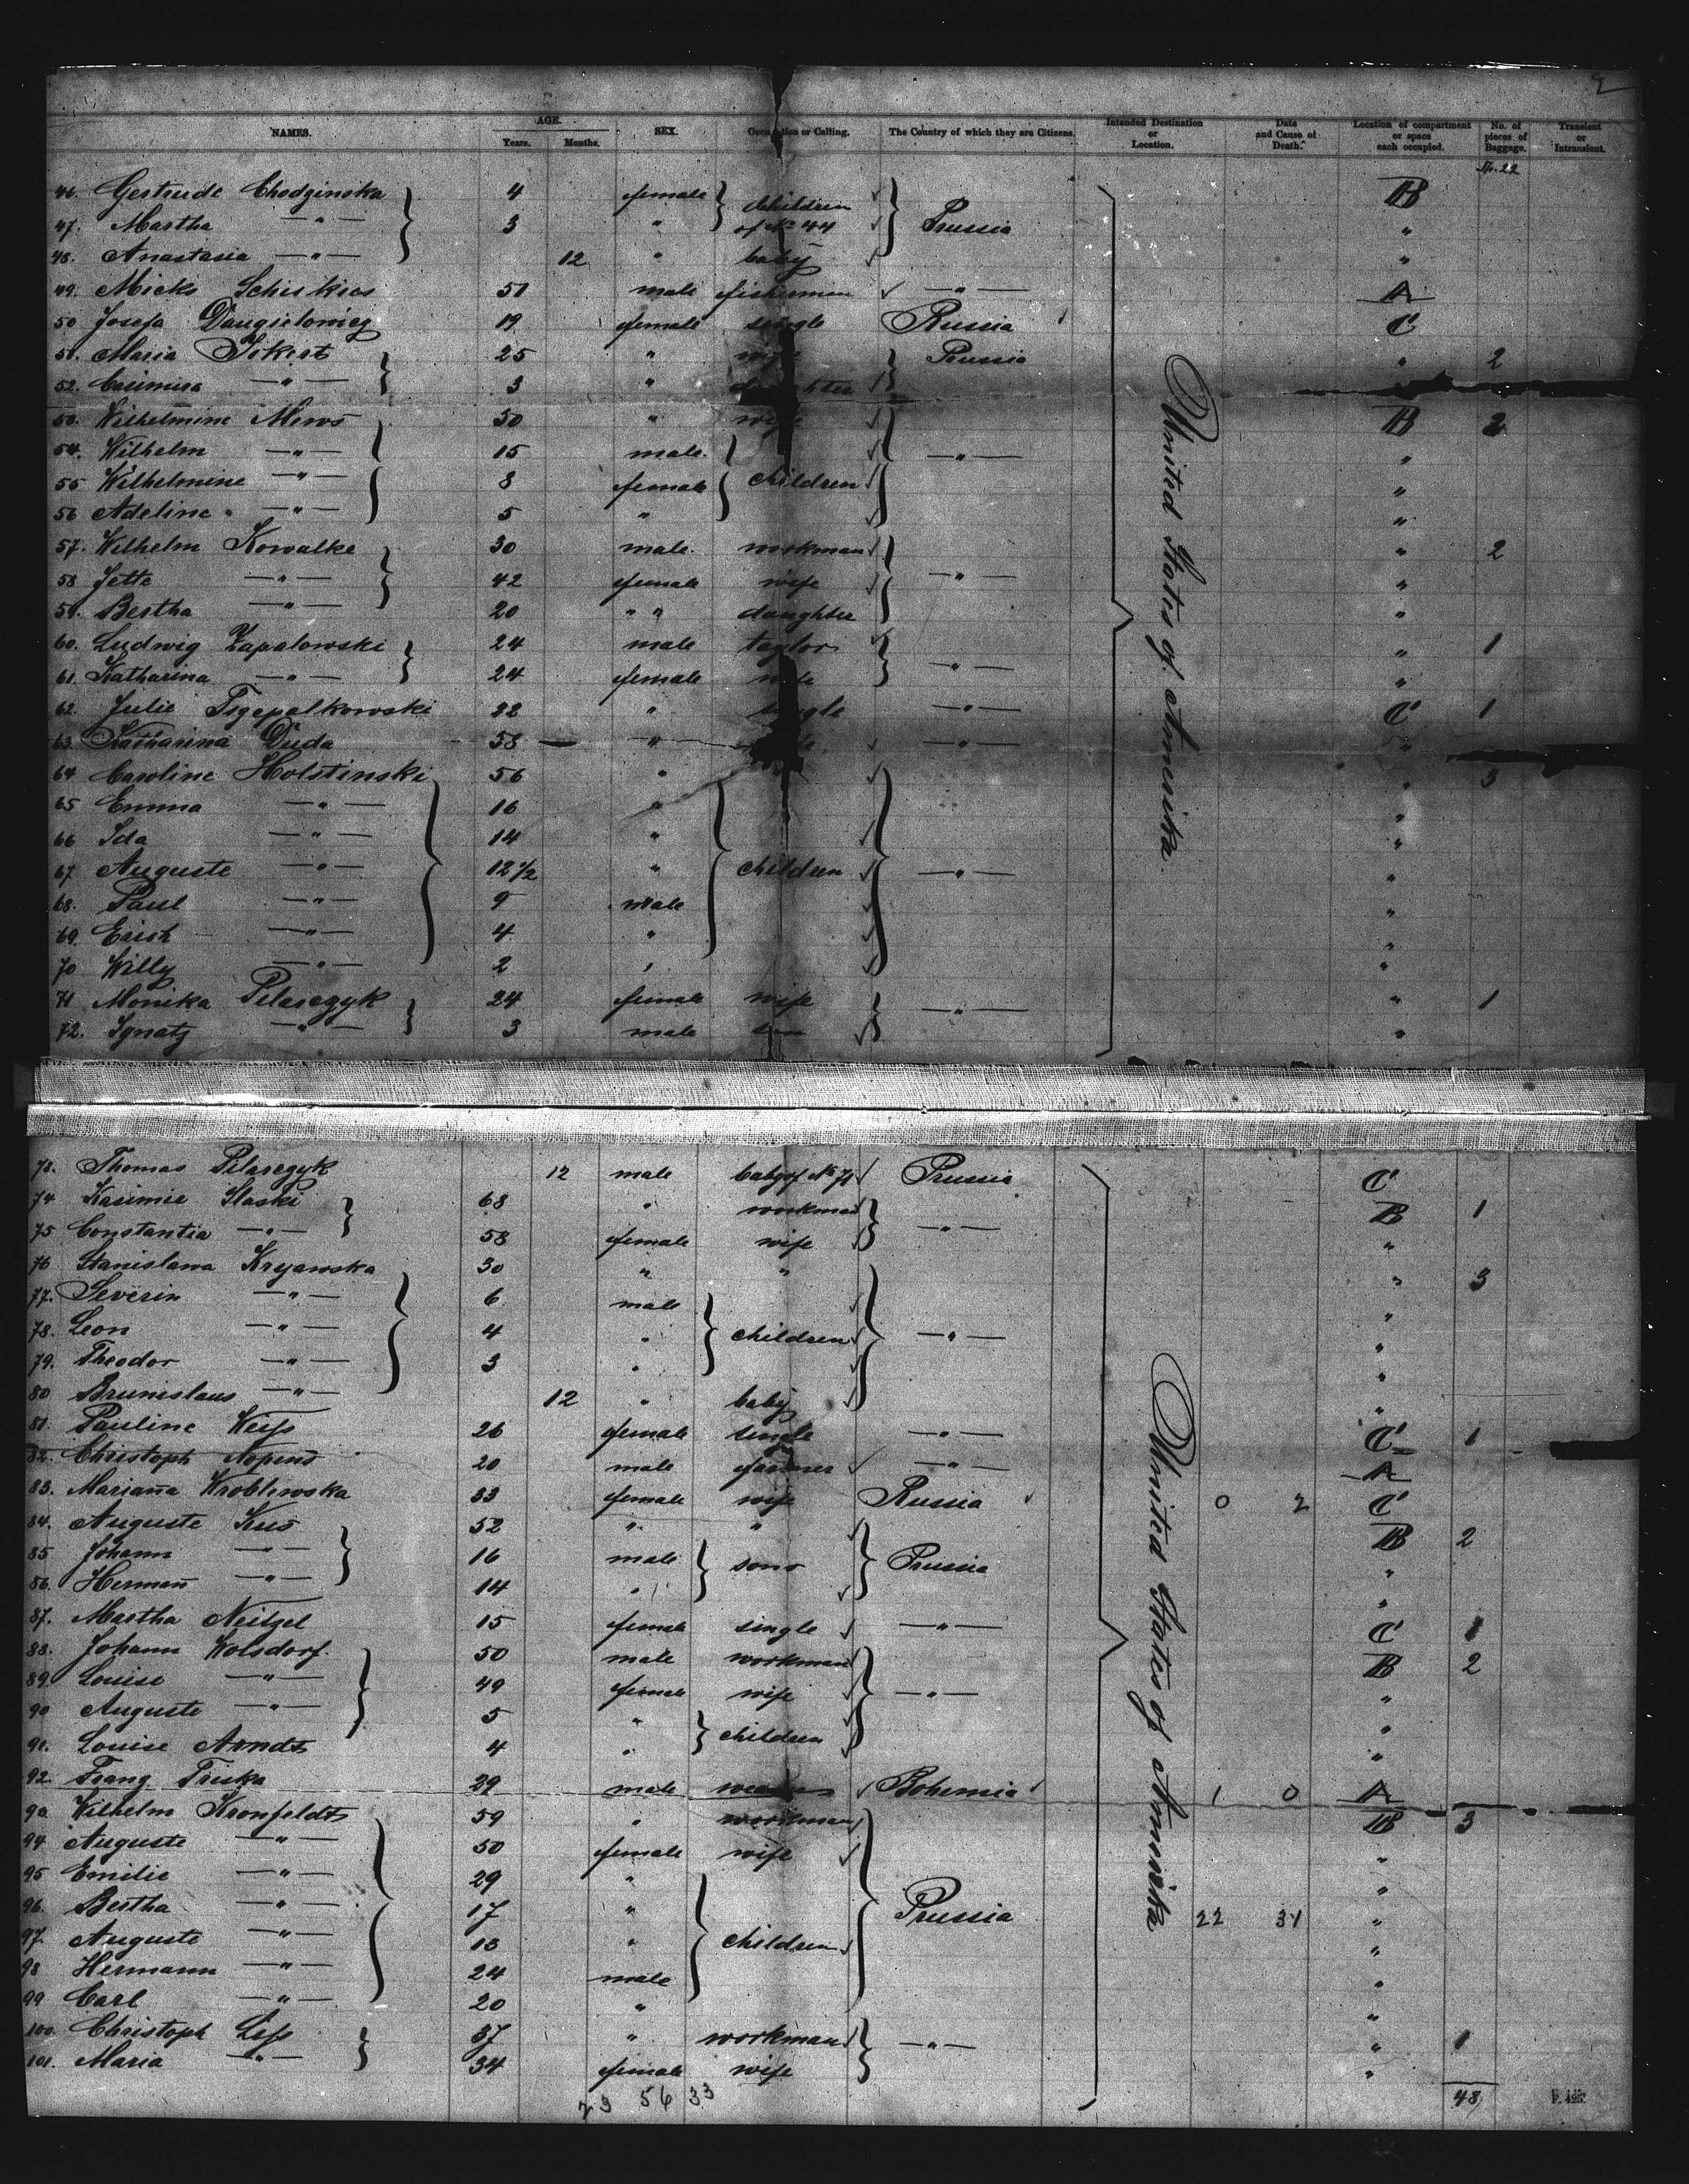 2
NAMES. AGE. Years. Months. SEX. Occupation or Calling. The Country of which they are Citizens. Intended Destination or Location. Date and Cause of Death. Location of compartment or space each occupied. No. of pieces of Baggage. Transient or Intransient.
22
46. Gertrude Chodzinska 4 female children B
47. Martha —"— 3 " of No 44 Prussia "
48. Anastasia —"— 12 " baby "
49. Micks 51 male fisherman —"— A
50 Josefa 19 female single Russia C
51. Maria 25 " Prussia " 2
52. Casimira —"— 3 " daughter
53. Wilhelmine Mews 50 " wife B 2
54. Wilhelm —"— 15 male. —"— "
55 Wilhelmine —"— 8 female children "
56 Adeline —"— 5 " "
57. Wilhelm Kowalke 30 male. workman " 2
58 Jette —"— 42 female wife —"— "
59. Bertha —"— 20 " " daughter "
60. Ludwig Zapalowski 24 male taylor " 1
61. Katharina —"— 24 female wife —"— "
62. Julie 22 " single —"— C 1
63. Katharina Duda 58 " —"— "
64 Caroline Holstinski 56 " " 3
65 Emma —"— 16 " "
66 Ida —"— 14 " "
67 Auguste —"— 12 1/2 " children —"— "
68. Paul —"— 9 male "
69. Erich —"— 4 " "
70 Willy —"— 2 " "
71 Monika Pilarczyk 24 female wife " 1
72. Ignatz —"— 3 male son —"— "
United States of America.
73. Thomas Pilarczyk 12 male baby of No 71 Prussia C
74 Kasimir Slaski 68 " workman B 1
75 Constantia —"— 58 female wife —"— "
76 Stanislawa 30 " " " 3
77. Severin —"— 6 male "
78. Leon —"— 4 " children —"— "
79. Theodor —"— 3 " "
80 Brunislaus —"— 12 " baby "
81. Pauline Weiss 26 female single —"— C 1
82. Christoph 20 male farmer —"— A
83. Marianna Wroblewska 33 female wife Russia 0 2 C
84. Auguste Kus 52 " " B 2
85 Johann —"— 16 male sons Prussia "
86. Hermann —"— 14 " "
87. Martha Neitzel 15 female single —"— C 1
88. Johann Wolsdorf. 50 male workman B 2
89. Louise —"— 49 female wife —"— "
90 Auguste —"— 5 " children "
91. Louise Arndt 4 " "
92. Franz Truka 29 male Bohemia 1 0 A
93 Wilhelm Kronfeldt 59 " workman B 3
94 Auguste —"— 50 female wife "
95 Emilie —"— 29 " "
96. Bertha —"— 17 " Prussia 22 34 "
97. Auguste —"— 13 " children "
98 Hermann —"— 24 male "
99 Carl —"— 20 " "
100. Christoph 37 " workman —"— " 1
101. Maria —"— 34 female wife "
United States of America
23 56 33 48
F. 425.